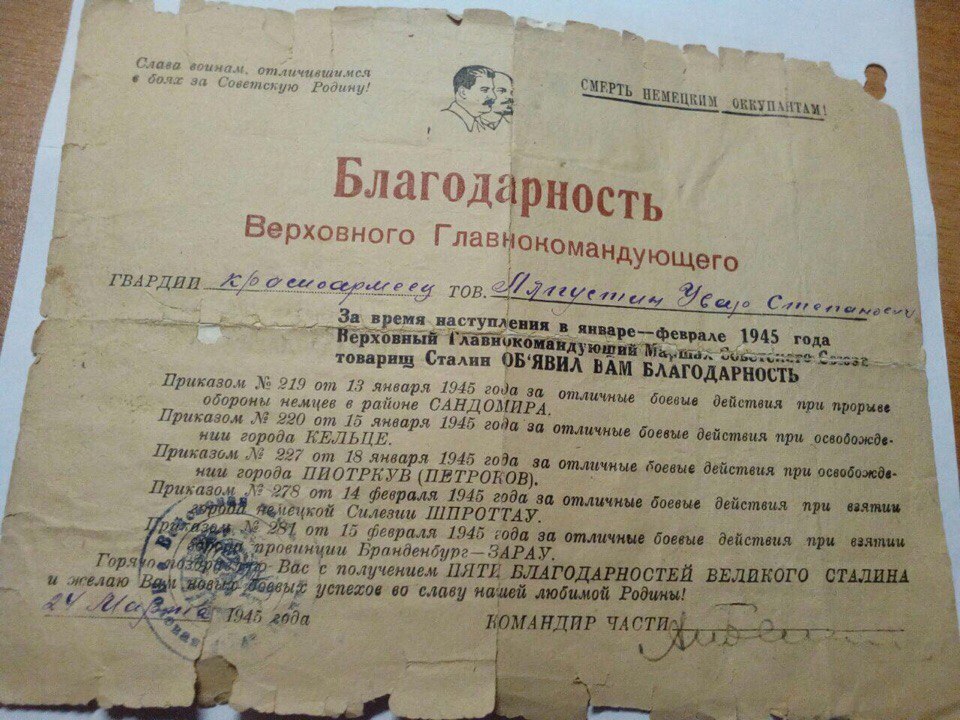 Слава воинам, отличившимся
в боях за Советскую Родину!
СМЕРТЬ НЕМЕЦКИМ ОККУПАНТАМ!
Благодарность
Верховного Главнокомандующего
ГВАРДИИ красноармеец ТОВ. Ляпустин Увар Степанович
За время наступления в январе—феврале 1945 года
Верховный Главнокомандующий Маршал Советского Союза
товарищ Сталин ОБ'ЯВИЛ ВАМ БЛАГОДАРНОСТЬ
Приказом № 219 от 13 января 1945 года за отличные боевые действия при прорыве
обороны немцев в районе САНДОМИРА.
Приказом № 220 от 15 января 1945 года за отличные боевые действия при освобожде-
нии города КЕЛЬЦЕ.
Приказом № 227 от 18 января 1945 года за отличные боевые действия при освобожде-
нии города ПИОТРКУВ (ПЕТРОКОВ).
Приказом № 278 от 14 февраля 1945 года за отличные боевые действия при взятии
города немецкой Силезии ШПРОТТАУ.
Приказом № 281 от 15 февраля 1945 года за отличные боевые действия при взятии
города провинции Бранденбург—ЗАРАУ.
Горячо поздравляю Вас с получением ПЯТИ БЛАГОДАРНОСТЕЙ ВЕЛИКОГО СТАЛИНА
и желаю Вам новых боевых успехов во славу нашей любимой Родины!
24 Марта 1945 года
КОМАНДИР ЧАСТИ